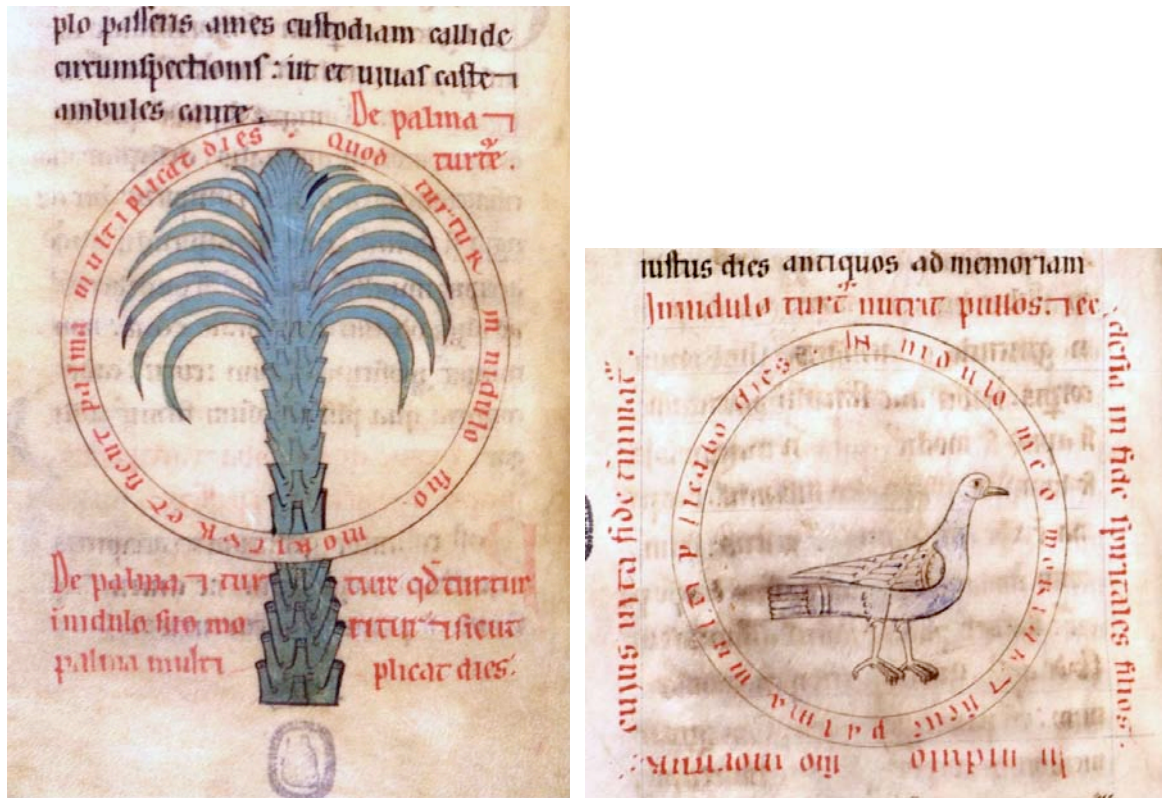 plo passeris ames custodiam callide
circumspectionis : ut et vivas caste ⁊
ambules caute .
De palma ⁊
turt̄e .
Quod turtur in nidulo suo moritur et sicut palma multiplicat dies .
De palma ⁊ tur ture qd̄ turtur
inidulo suo mo ritur ⁊ sicut
palma multi plicat dies .
iustus dies antiquos ad memoriam
In nidulo turt̄ nutrit pullos . ⁊ ec
clesia in fide spiritales filios .
In nidulo suo moritur
cuius iuxta fide
In nidulo meo moriar ⁊ sicut palma multiplicabo dies